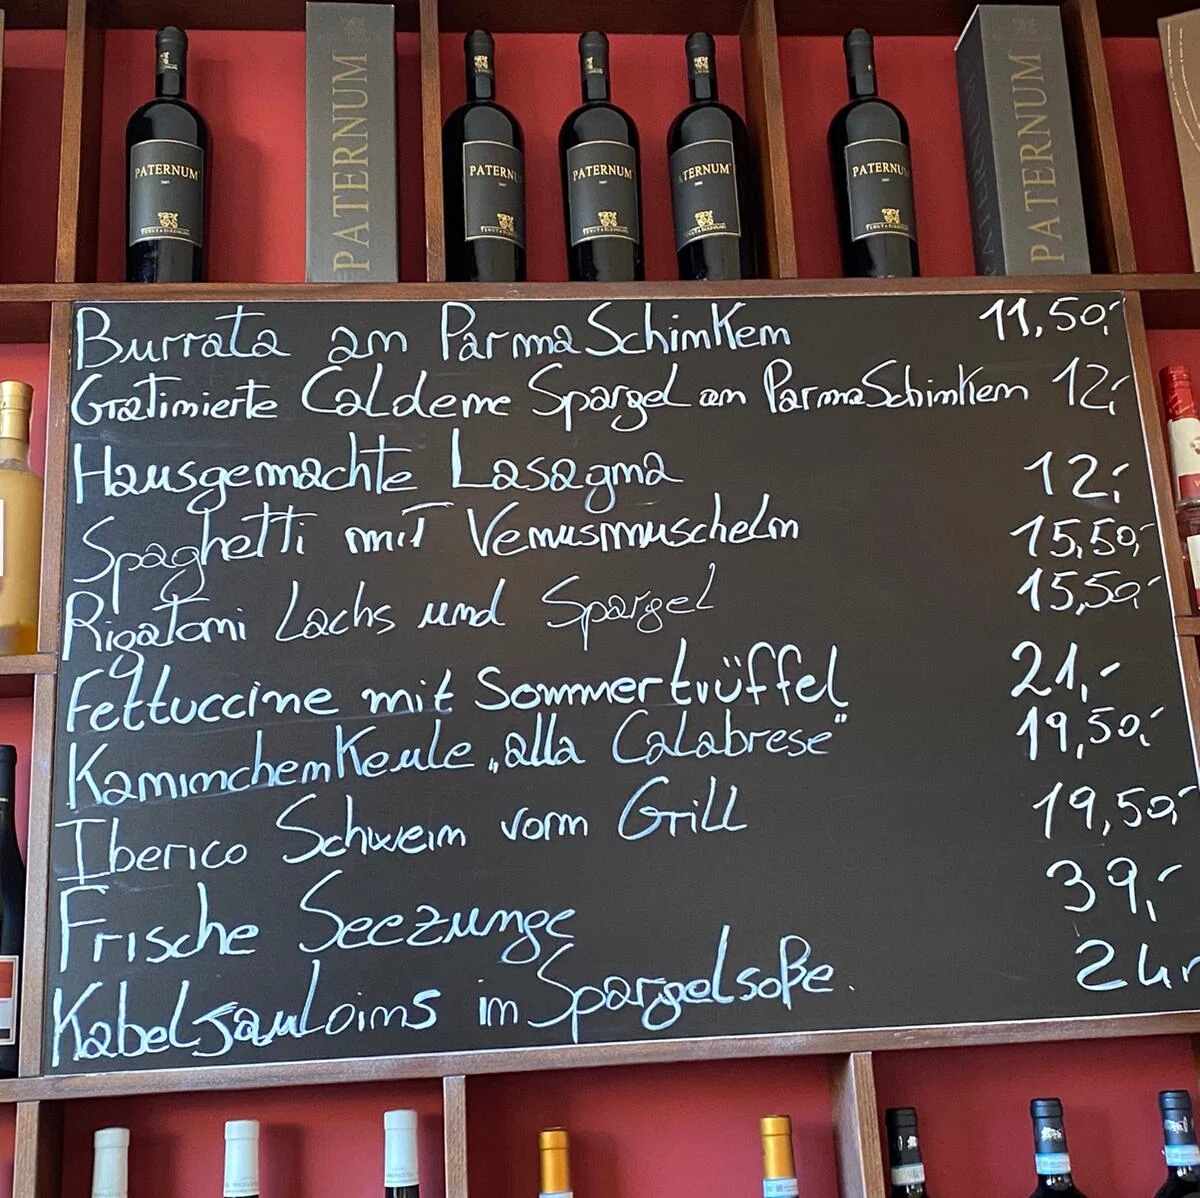 PATERNUM
PATERNUM
PATERNUM
PATERNUM
PATERNUM
PATERNUM
PATERNUM
TENUTA IUZZOLINI
Burrata am ParmaSchinken 11,50,-
Gratinierte Caldeme Spargel am ParmaSchinken 12,-
Hausgemachte Lasagna 12,-
Spaghetti mit Venusmuscheln 15,50,-
Rigatoni Lachs und Spargel 15,50,-
Fettuccine mit Sommertrüffel 21,-
Kaninchenkeule „alla Calabrese" 19,50,-
Iberico Schwein vom Grill 19,50,-
Frische Seezunge 39,-
Kabeljauloins in Spargelsoße. 24,-